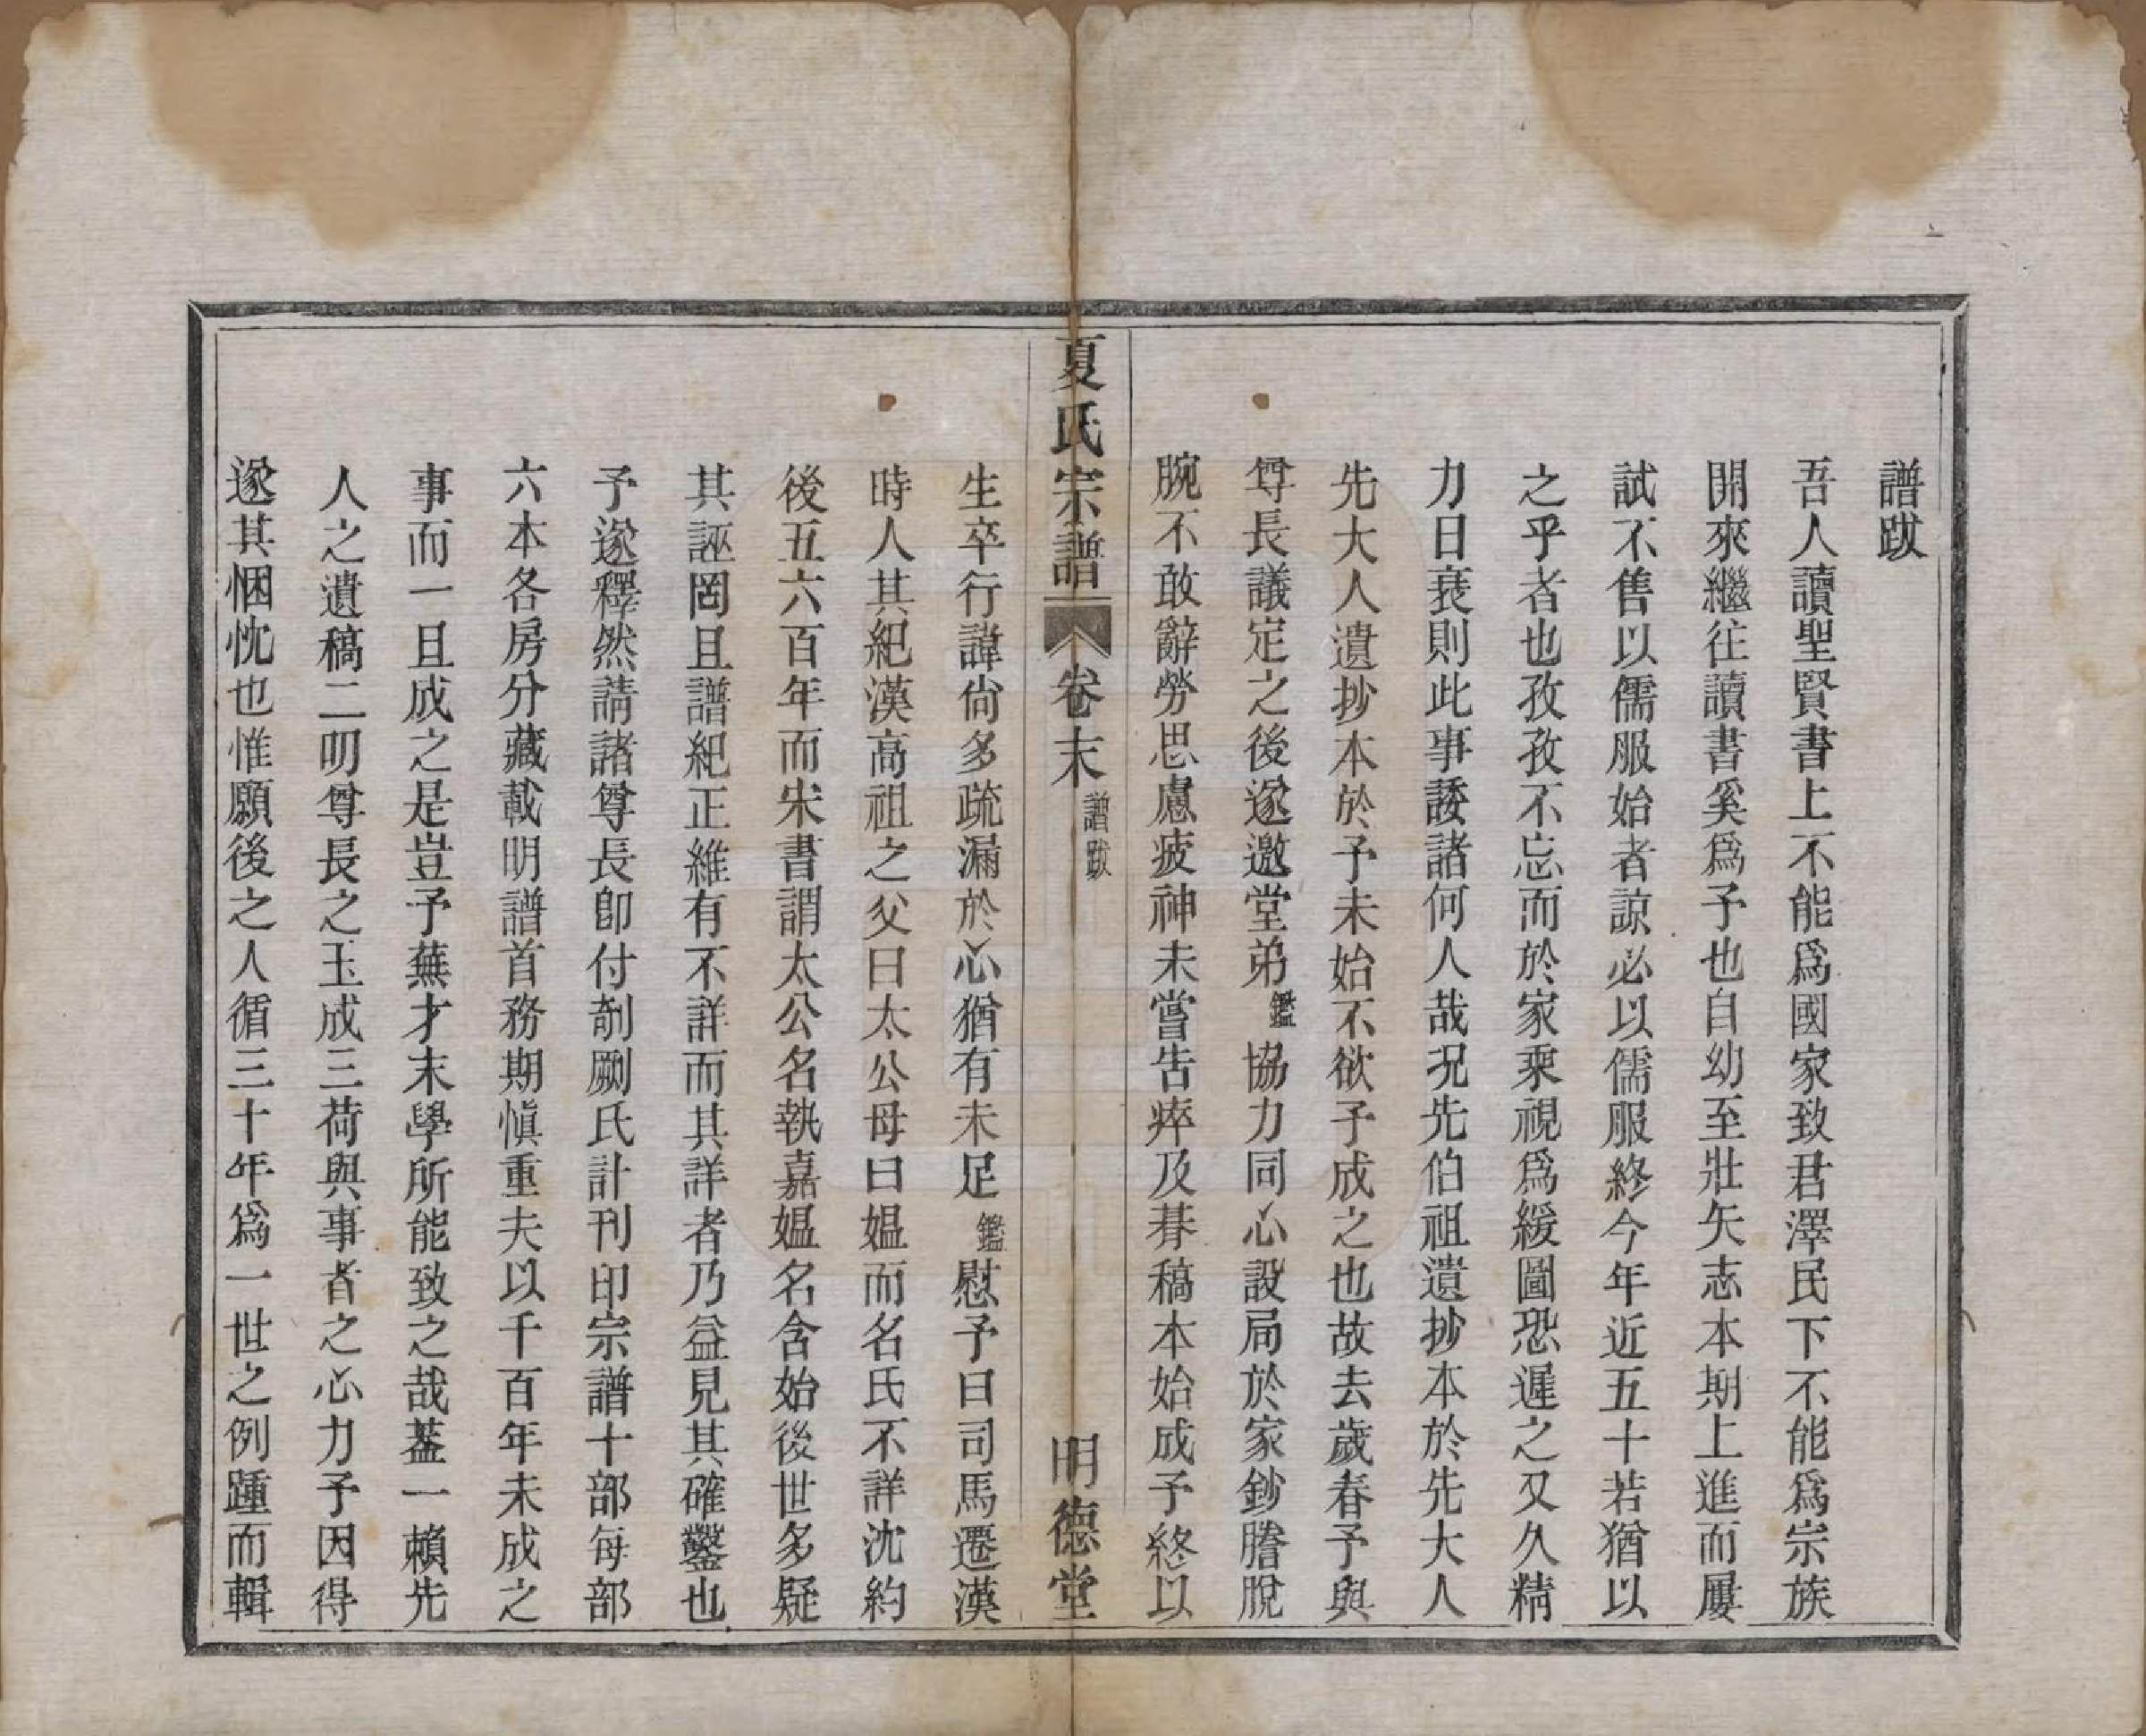 譜跋
吾人讀聖賢書上不能爲國家致君澤民下不能爲宗族
開來繼往讀書奚爲予也自幼至壯矢志本期上進而屢
試不售以儒服始者諒必以儒服終今年近五十若猶以
之乎者也孜孜不忘而於家乘視爲緩圖恐遲之又久精
力日衰則此事諉諸何人哉况先伯祖遺抄本於先大人
先大人遺抄本於予未始不欲予成之也故去歲春予與
尊長議定之後遂邀堂弟鑑協力同心設局於家鈔謄脫
腕不敢辭勞思慮疲神未嘗告瘁及朞稿本始成予終以
夏氏宗譜 卷末 譜跋 明德堂
生卒行諱尙多疏漏於心猶有未足鑑慰予曰司馬遷漢
時人其紀漢高祖之父曰太公母曰媼而名氏不詳沈約
後五六百年而宋書謂太公名執嘉媼名含始後世多疑
其誣罔且譜紀正維有不詳而其詳者乃益見其確鑿也
予遂釋然請諸尊長卽付剞劂氏計刊印宗譜十部每部
六本各房分藏載明譜首務期愼重夫以千百年未成之
事而一旦成之是豈予蕪才末學所能致之哉葢一賴先
人之遺稿二叨尊長之玉成三荷與事者之心力予因得
遂其悃忱也惟願後之人循三十年爲一世之例踵而輯